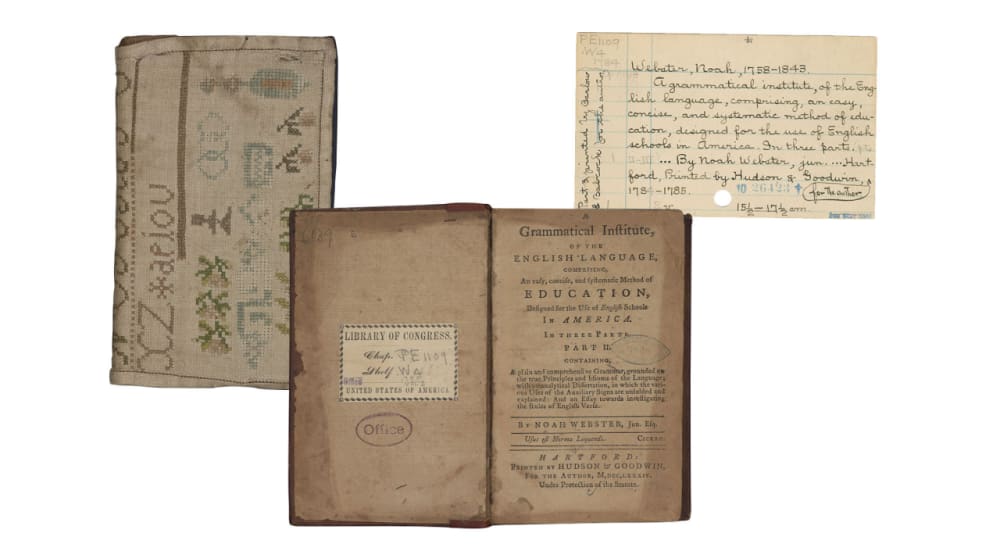 PE1109
.W4
1784
Webster, Noah, 1758-1843.
A grammatical institute, of the Eng-
lish language, comprising, an easy,
concise, and systematic method of edu-
cation, designed for the use of English
schools in America. In three parts.
... By Noah Webster, jun. ... Hart-
ford, Printed by Hudson & Goodwin,
for the author
1784-1785.
15½-17½ cm.
26423
Part 3 printed by Barlow
& Babcock for the author
A
Grammatical Inſtitute,
OF THE
ENGLISH LANGUAGE,
COMPRISING,
An eaſy, conciſe, and ſyſtematic Method of
EDUCATION,
Deſigned for the Uſe of Engliſh Schools
IN AMERICA.
IN THREE PARTS.
PART II.
CONTAINING,
A plain and comprehenſive Grammar, grounded on
the true Principles and Idioms of the Language;
with an analytical Diſſertation, in which the vari-
ous Uſes of the Auxiliary Signs are unfolded and
explained: And an Eſſay towards inveſtigating
the Rules of Engliſh Verſe.
BY NOAH WEBSTER, Jun. Eſq.
Uſus eſt Norma Loquendi. CICERO.
HARTFORD:
PRINTED BY HUDSON & GOODWIN,
FOR THE AUTHOR, M,DCC,LXXXIV.
Under Protection of the Statute.
LIBRARY OF CONGRESS.
Chap. PE1109
Shelf W4
UNITED STATES OF AMERICA
Office